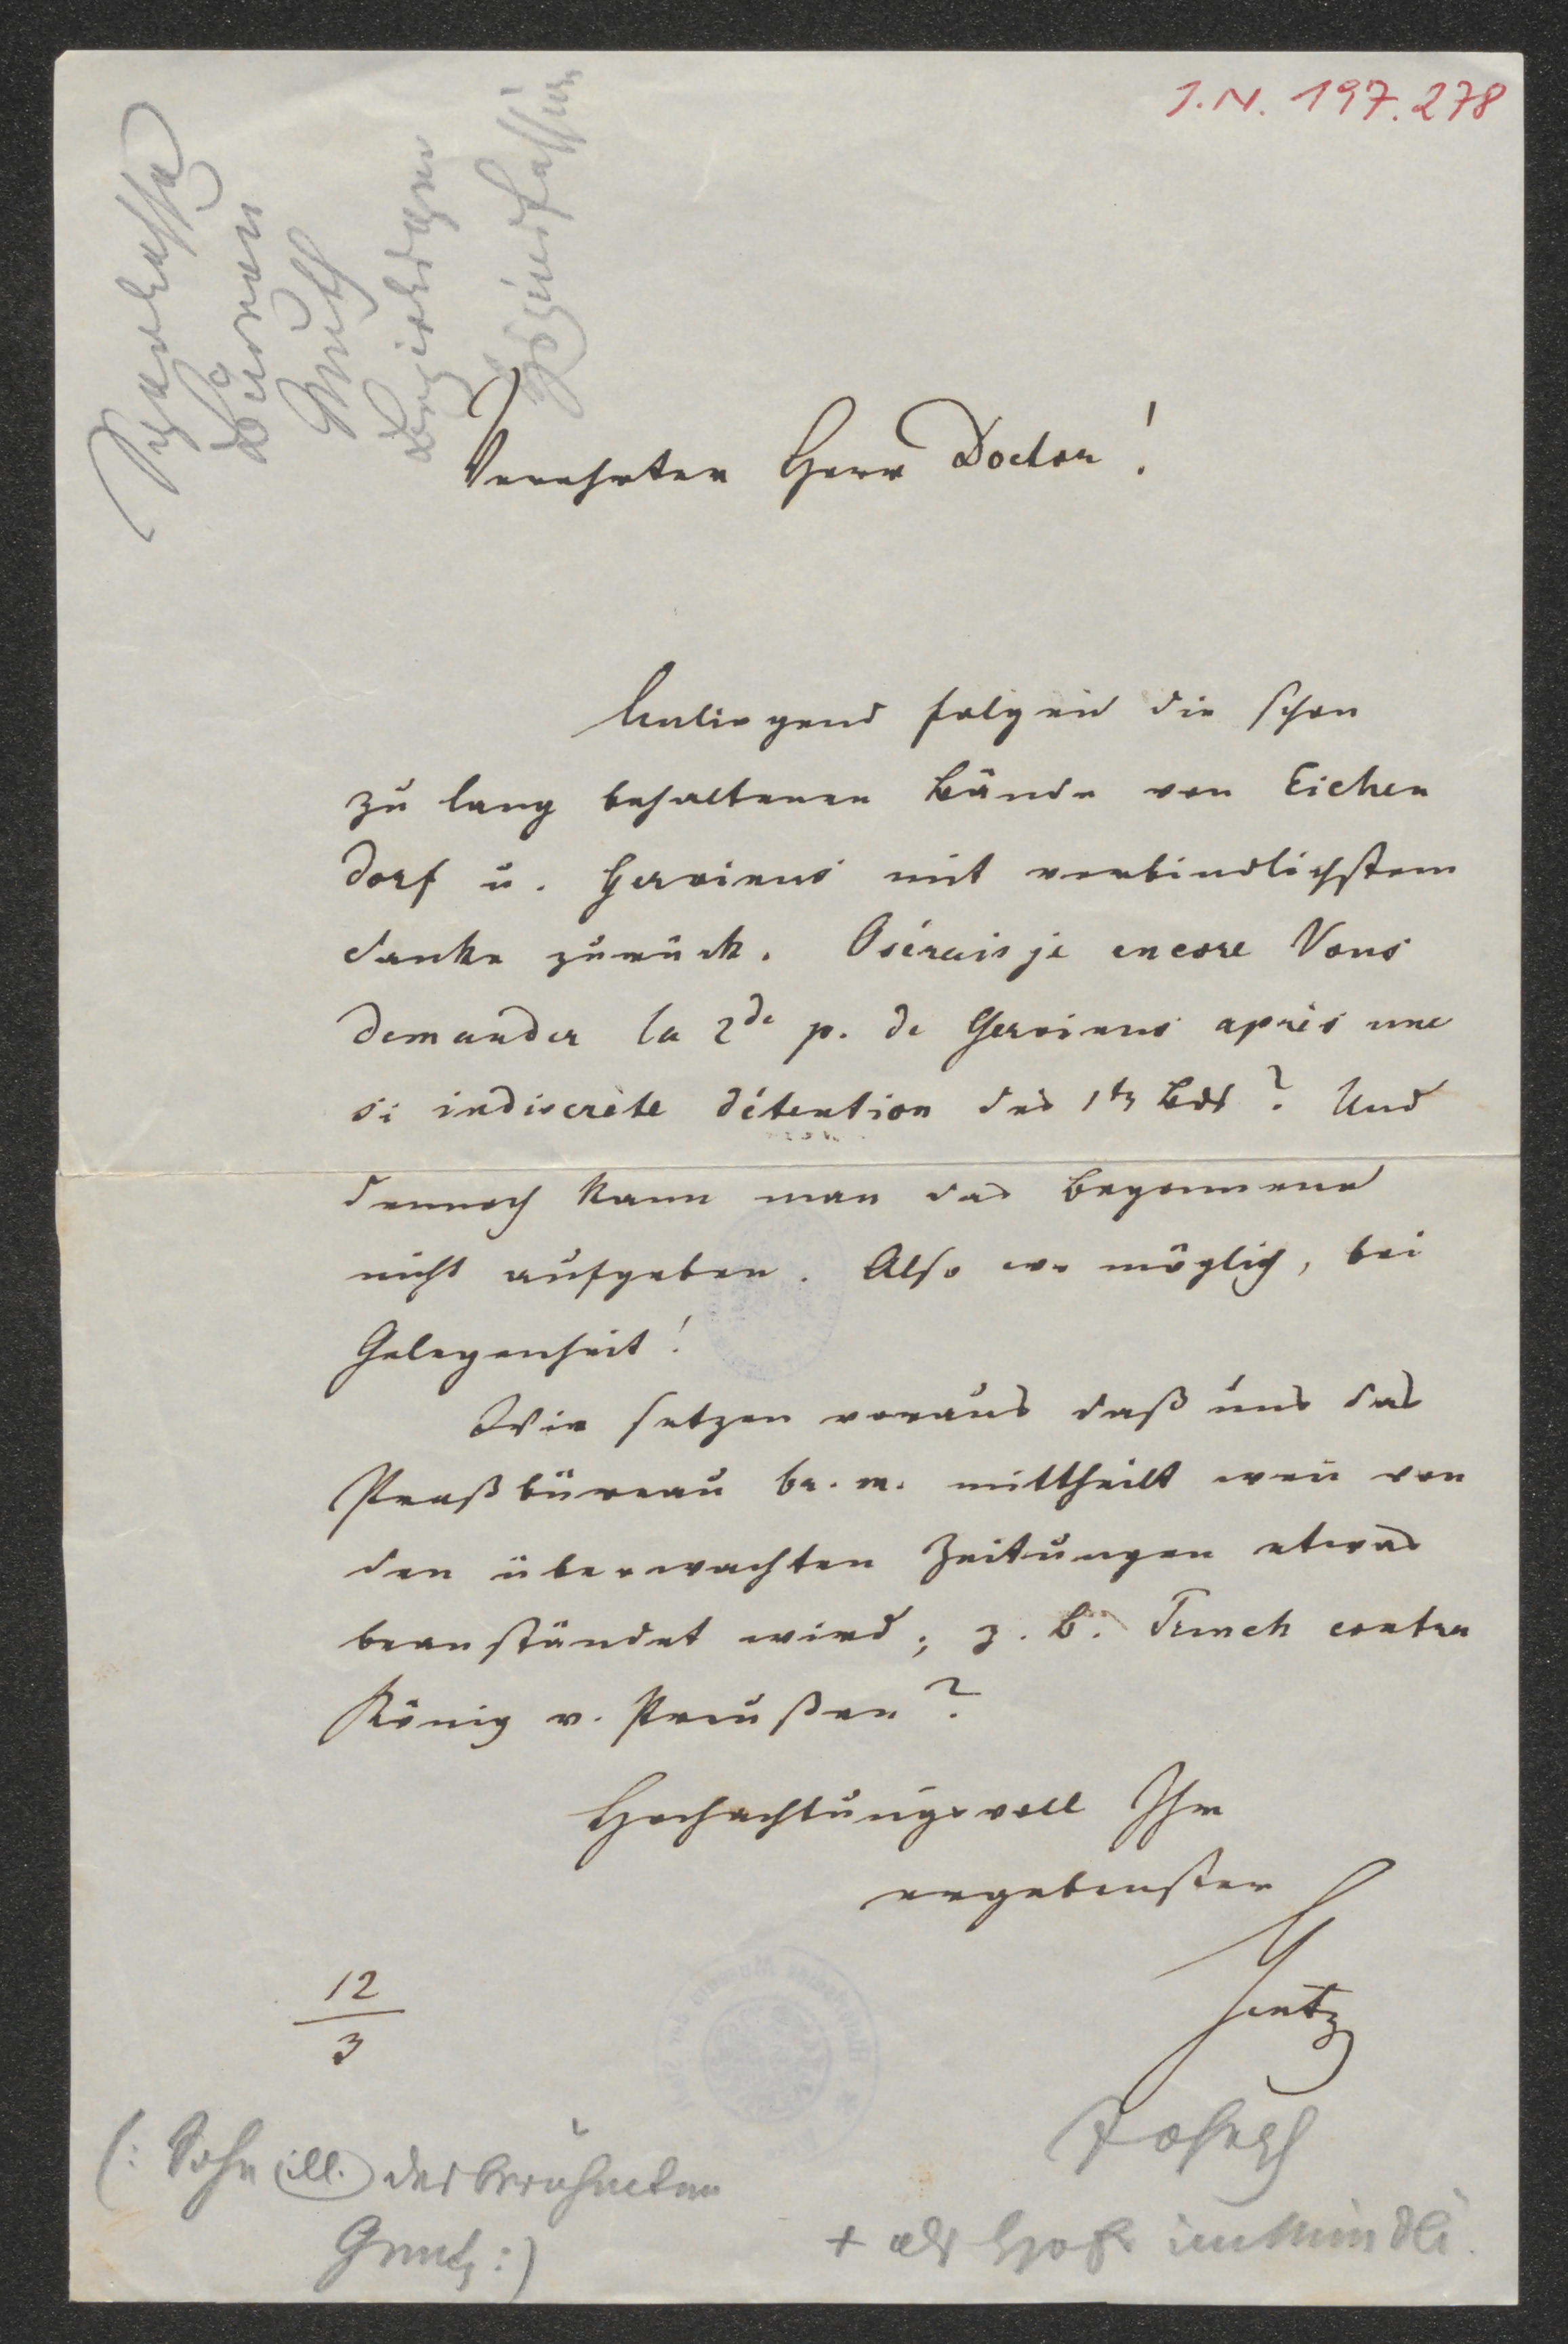 J.N. 197.278
Verehrter Herr Doctor!
Anliegend folgen die schon
zu lang behaltenen Bände von Eichen
dorf u. Gervinus mit verbindlichstem
Danke zurück. Osérais je encore Vous
demander la 2de p. de Gervinus après une
si indiscrète détention des 1ten Bds? Und
dennoch kann man das Begonnene
nicht aufgeben. Also wo möglich, bei
Gelegenheit!
Wir setzen voraus daß uns das
Preßbüreau br. m. mittheilt wenn von
den überwachten Zeitungen etwas
beanständet wird; z. B. contra
König v. Preußen?
Hochachtungsvoll Ihr
ergebenster
Gentz
12
3
Joseph
(: Sohn ill. des berühmten
Gentz :)
+ als Hofr. im